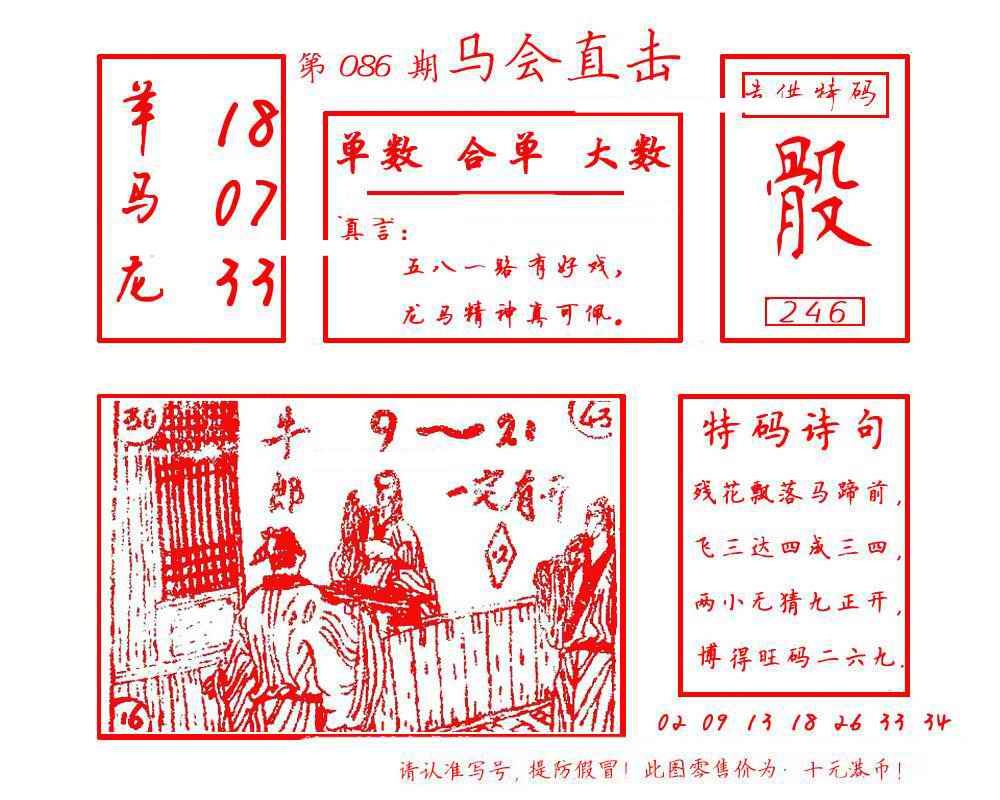 第 086 期 马会直击
羊 18
马 07
龙 33
单数 合单 大数
真言:
五八一路有好戏,
龙马精神真可佩。
供特码
骰
246
30
牛郎
9～21
43
一定有
12
16
特码诗句
残花飘落马蹄前,
飞三达四成三四,
两小无猜九正开,
博得旺码二六九.
02 09 13 18 26 33 34
请认准写号, 提防假冒! 此图零售价为· 十元港币!